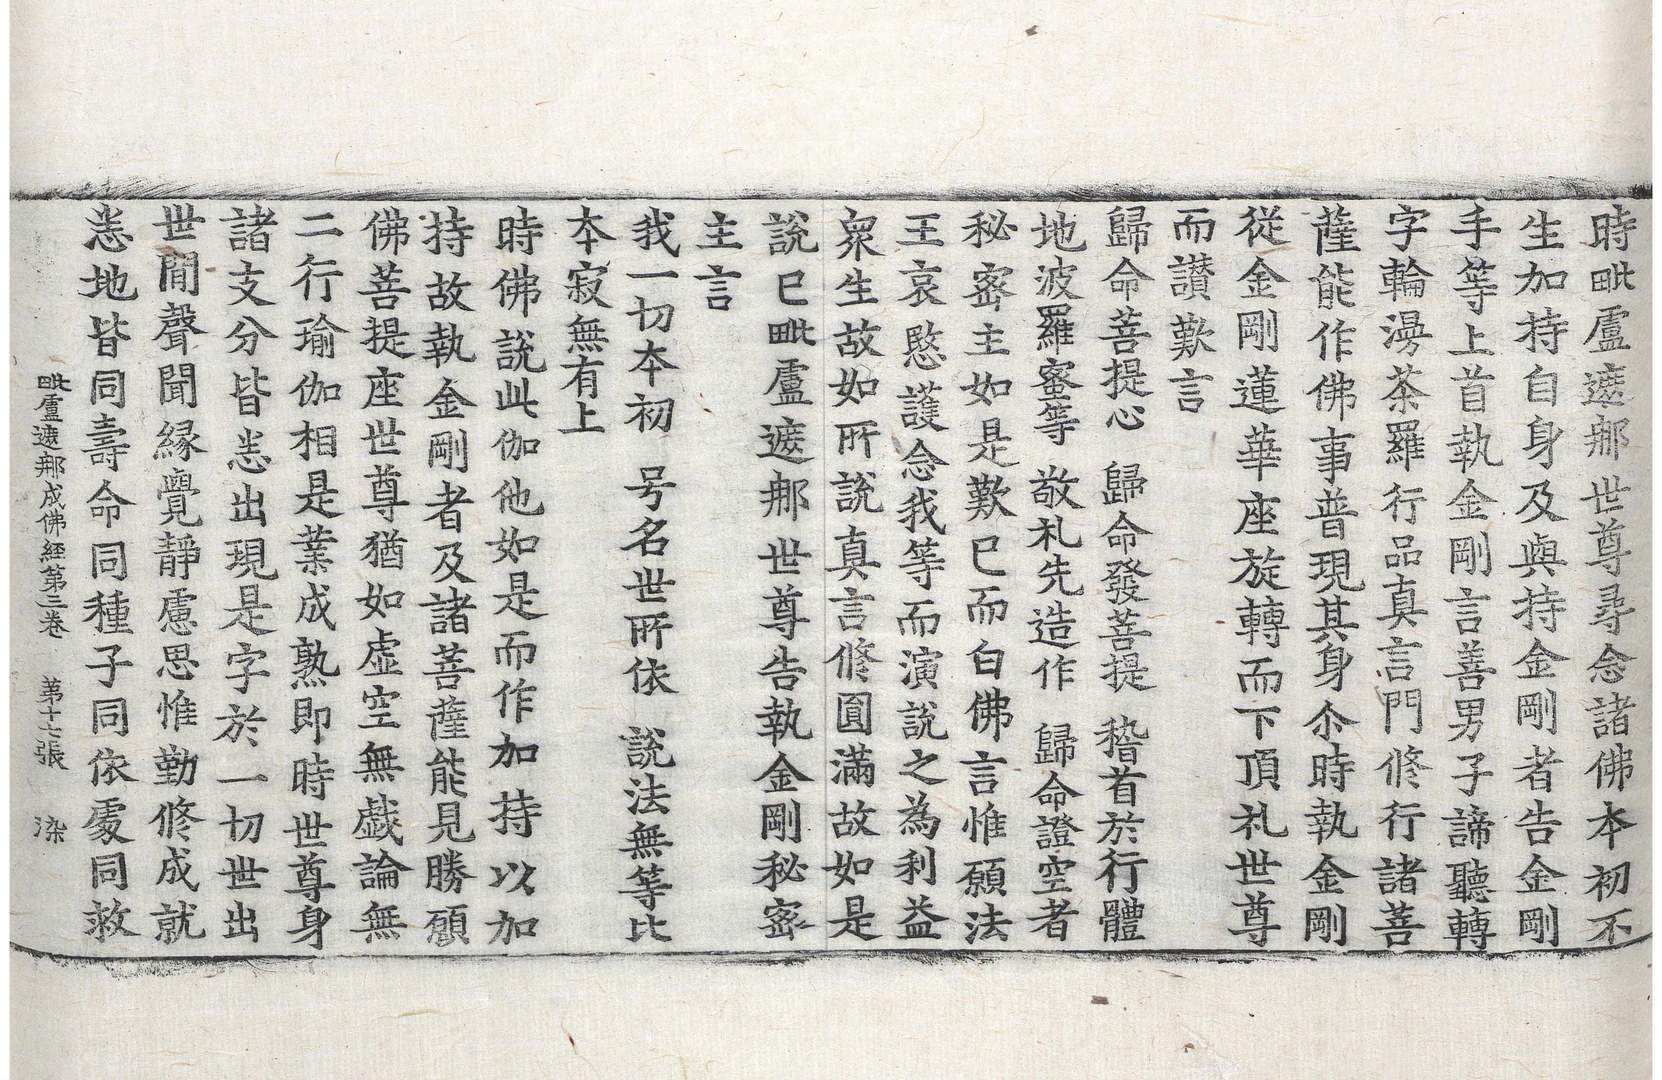 時毗盧遮那世尊尋念諸佛本初不
生加持自身及與持金剛者告金剛
手等上首執金剛言善男子諦聽轉
字輪漫荼羅行品真言門修行諸菩
薩能作佛事普現其身尒時執金剛
從金剛蓮華座旋轉而下頂礼世尊
而讃歎言
歸命菩提心　歸命發菩提　稽首於行體
地波羅蜜等　敬礼先造作　歸命證空者
秘密主如是歎已而白佛言惟願法
王哀愍護念我等而演說之為利益
衆生故如所說真言修圓滿故如是
說已毗盧遮那世尊告執金剛秘密
主言
我一切本初　号名世所依　說法無等比
本寂無有上
時佛說此伽他如是而作加持以加
持故執金剛者及諸菩薩能見勝願
佛菩提座世尊猶如虛空無戲論無
二行瑜伽相是業成熟即時世尊身
諸支分皆悉出現是字於一切世出
世間聲聞緣覺靜慮思惟勤修成就
悉地皆同壽命同種子同依處同救
毗盧遮那成佛經第三卷　第十七張　染